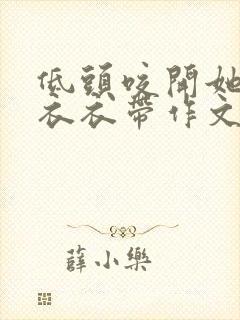 低頭咬開她
衣衣帶作文
薛小樂